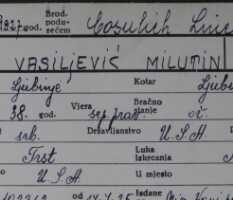 1927 god. Brod. podu- sećem Cosulich Line
VASILJEVIĆ MILUTIN
Ljubinje Kotar Ljubi
38. god. Vjera srp. prav. Bračno stanje ož.
srb. Državljanstvo U.S.A.
Trst Luka iskrcanja
U.S.A. U mjesto
od Izdane